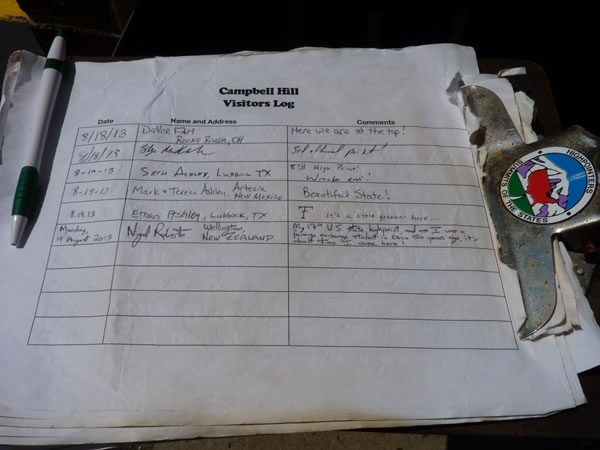 Campbell Hill
Visitors Log
Date Name and Address Comments
8/18/13 DeVor FAM Here we are at the top!
Rocky River, OH
8/18/13 3rd point!
8-19-13 Seth Ashley, Lubbock TX 8th High Point!
Wreck 'em!
8-19-13 Mark + Teresa Ashley, Artesia, New Mexico Beautiful State!
8.19.13 Ethan Ashley, Lubbock, TX It's a little greener here...
Monday,
19 August 2013 Nigel Roberts Wellington,
NEW ZEALAND
My 17th US state highpoint, and as I was a
foreign exchange student in Ohio 50 years ago, it's
about time I came here!
HIGHPOINTERS
SUMMITS OF THE STATES